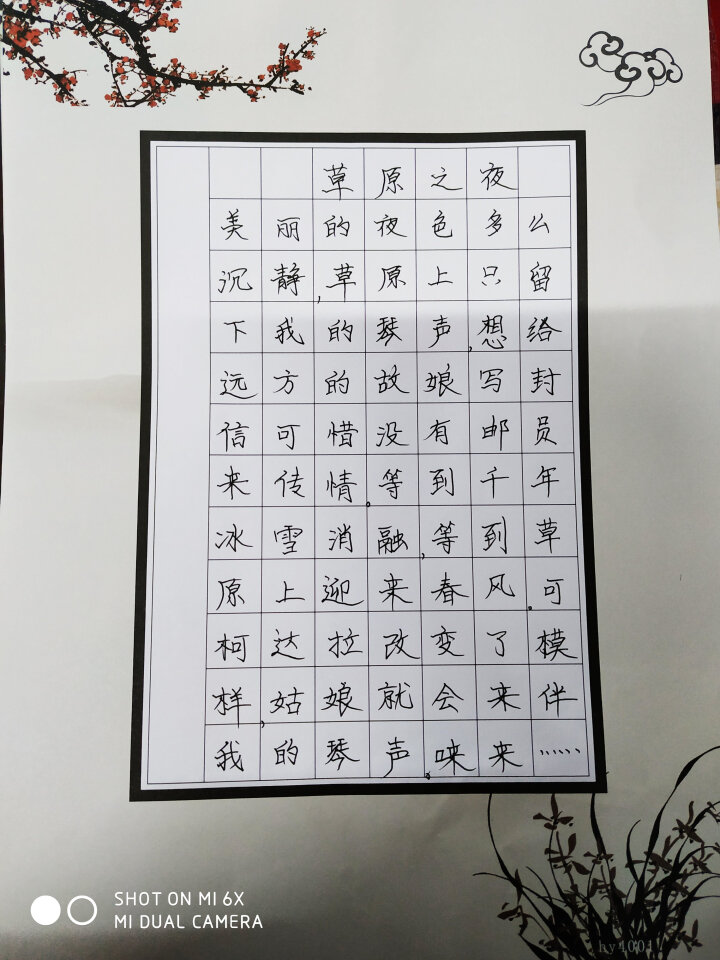 草原之夜
美丽的夜色多么
沉静,草原上只留
下我的琴声,想给
远方的故娘写封
信可惜没有邮员
来传情。等到千年
冰雪消融,等到草
原上迎来春风。可
柯达拉改变了模
样,姑娘就会来伴
我的琴声。唻来……
SHOT ON MI 6X
MI DUAL CAMERA
hy4001